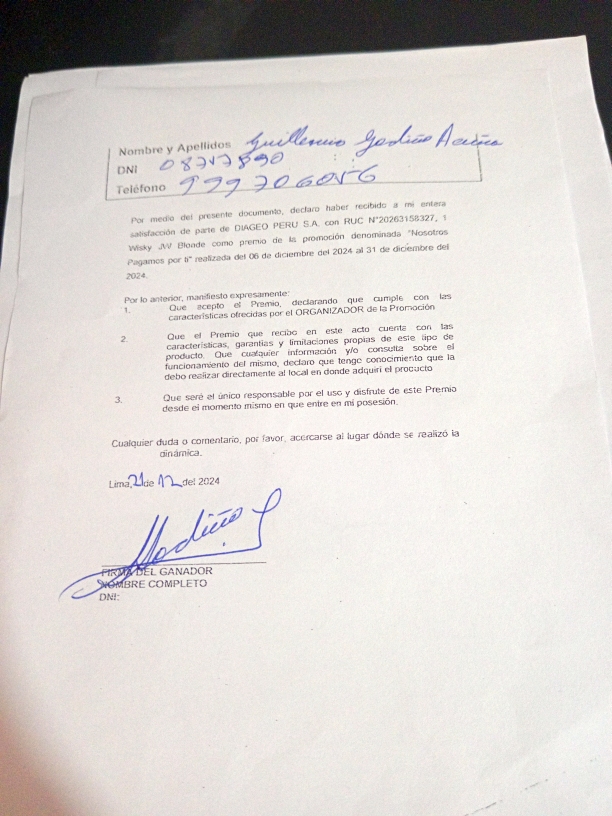 Nombre y Apellidos Guillermo
DNI
Teléfono 999706056
Por medio del presente documento, declaro haber recibido a mi entera
satisfacción de parte de DIAGEO PERU S.A. con RUC N°20263158327, 1
Wisky JW Blonde como premio de la promoción denominada "Nosotros
Pagamos por ti" realizada del 06 de diciembre del 2024 al 31 de diciembre del
2024.
Por lo anterior, manifiesto expresamente:
1. Que acepto el Premio, declarando que cumple con las
características ofrecidas por el ORGANIZADOR de la Promoción
2. Que el Premio que recibo en este acto cuenta con las
características, garantías y limitaciones propias de este tipo de
producto. Que cualquier información y/o consulta sobre el
funcionamiento del mismo, declaro que tengo conocimiento que la
debo realizar directamente al local en donde adquirí el producto
3. Que seré el único responsable por el uso y disfrute de este Premio
desde el momento mismo en que entre en mi posesión.
Cualquier duda o comentario, por favor, acercarse al lugar dónde se realizó la
dinámica.
Lima, 21 de 12 del 2024
FIRMA DEL GANADOR
NOMBRE COMPLETO
DNI: